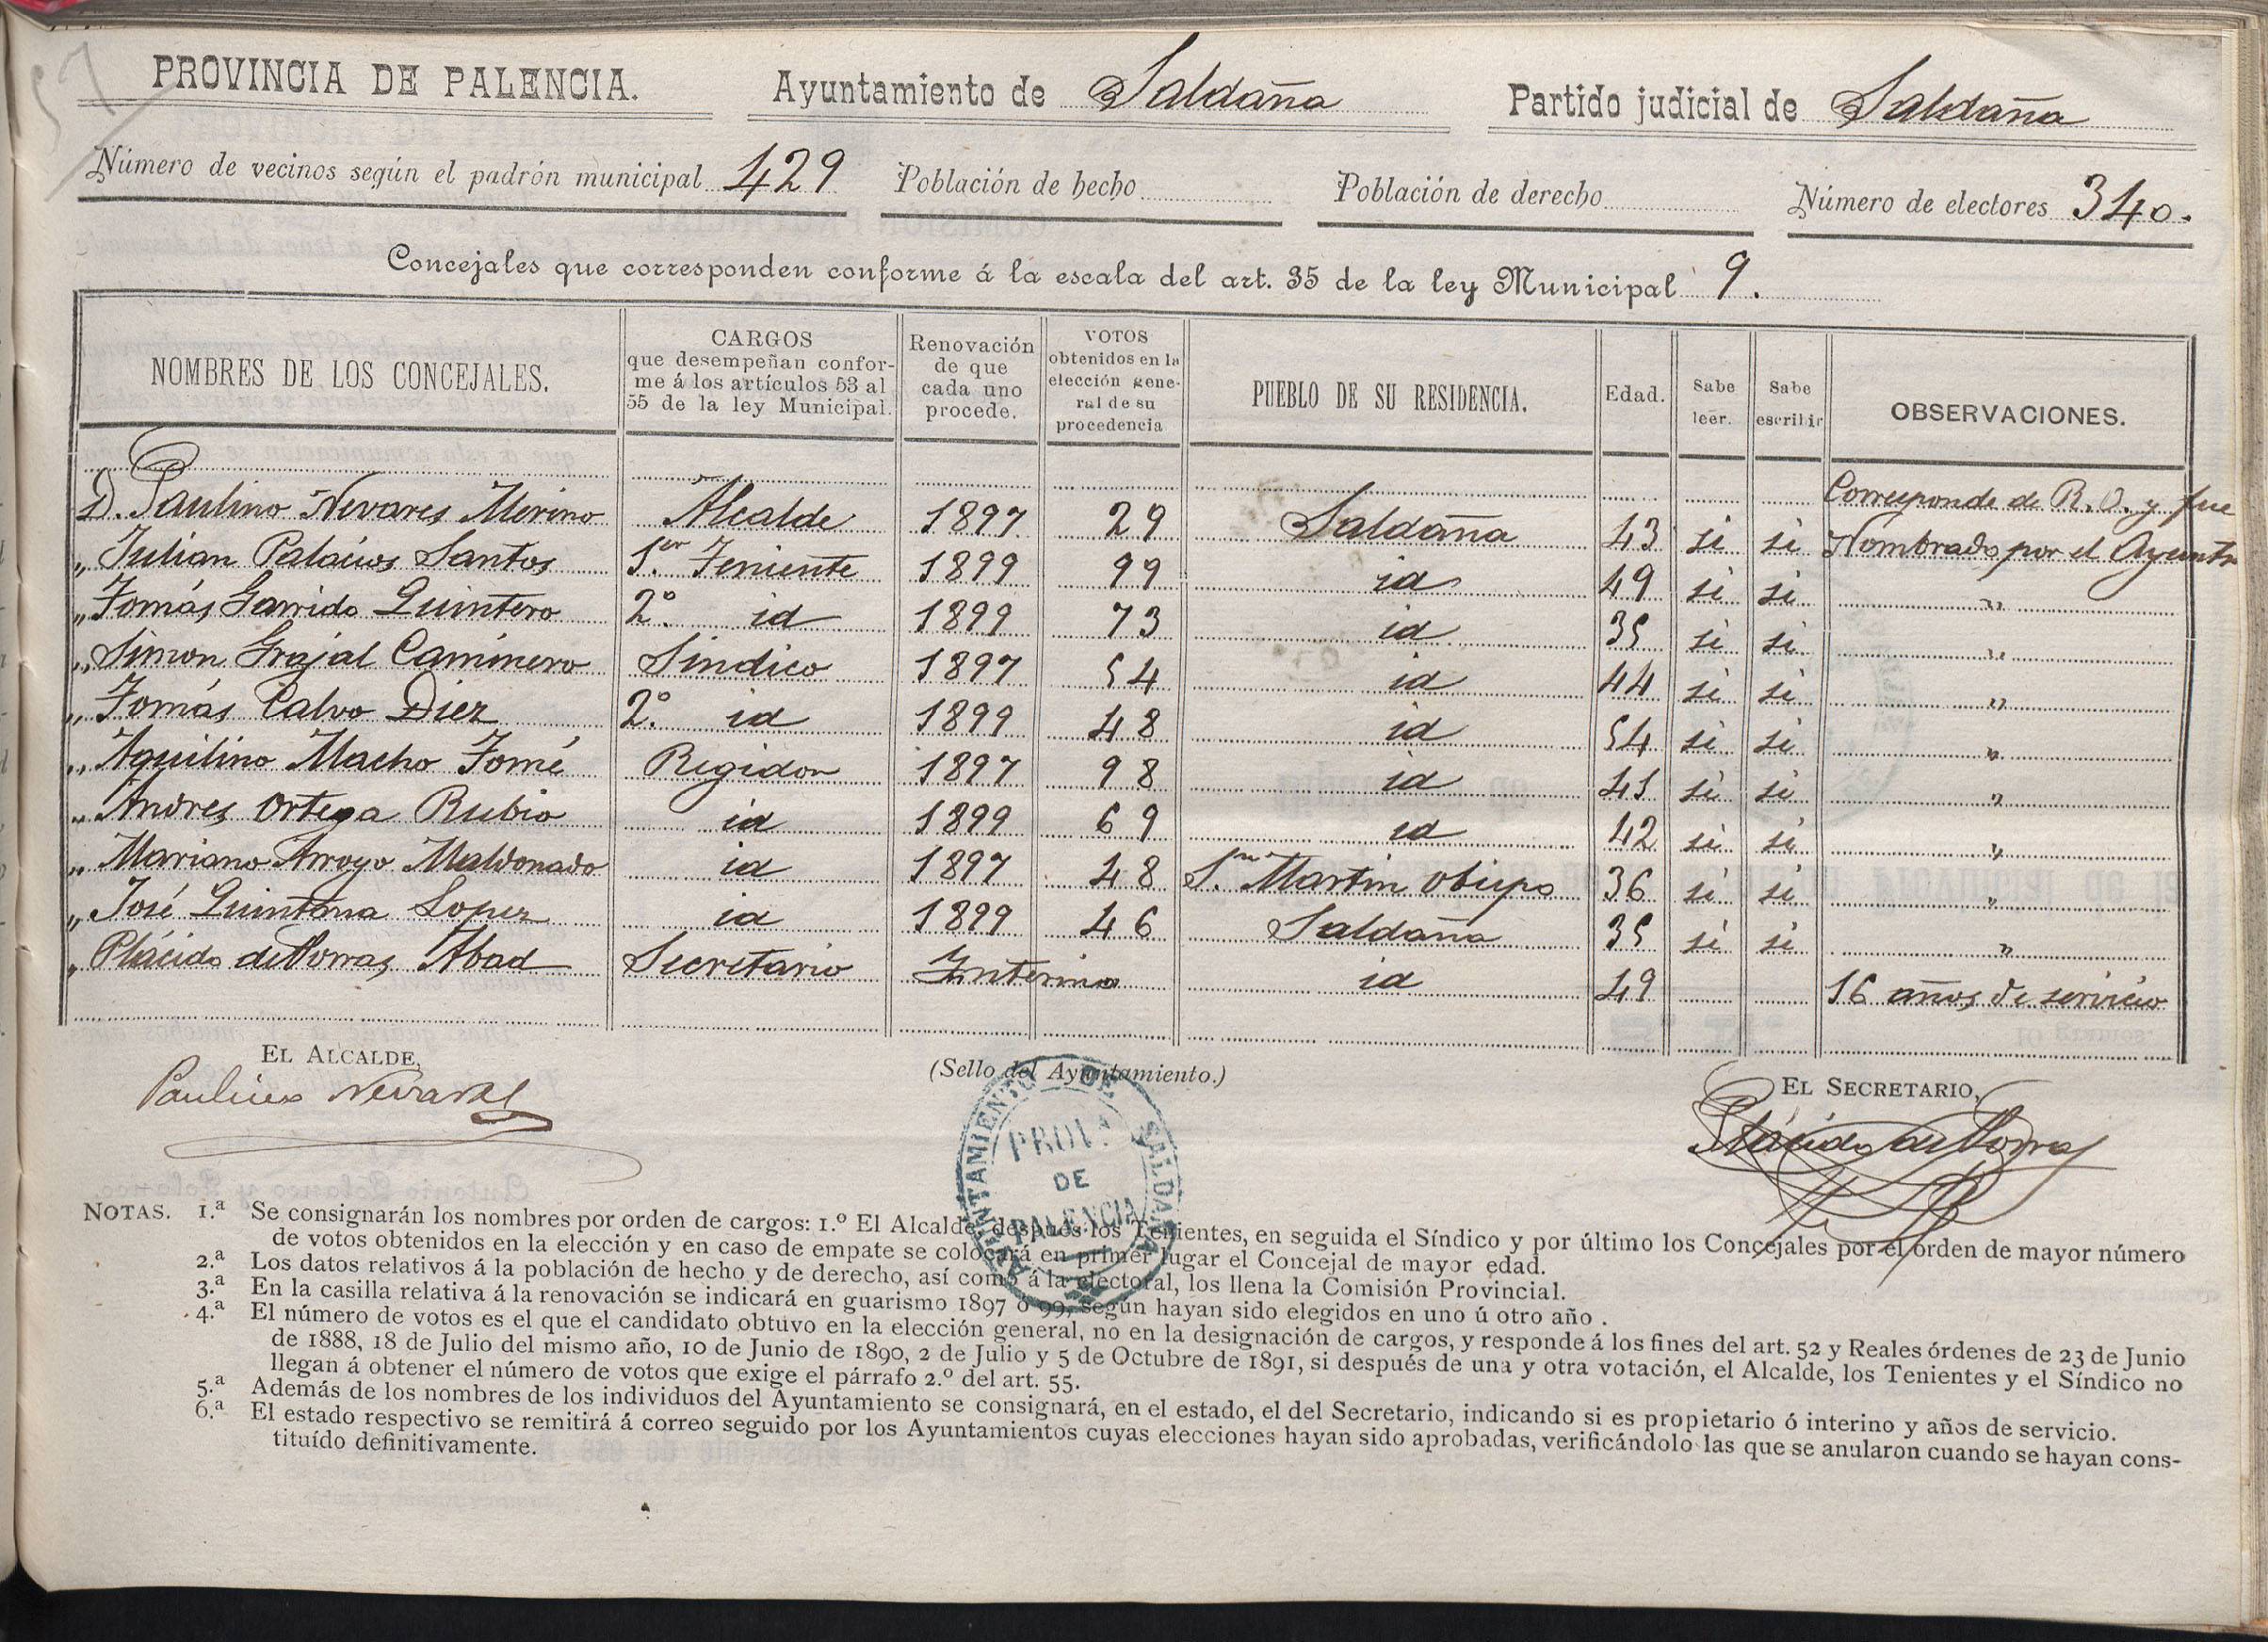 57
PROVINCIA DE PALENCIA. Ayuntamiento de Saldaña Partido judicial de Saldaña
Número de vecinos según el padrón municipal 429 Población de hecho Población de derecho Número de electores 340.
Concejales que corresponden conforme á la escala del art. 35 de la ley Municipal 9.
NOMBRES DE LOS CONCEJALES. CARGOS que desempeñan conforme á los artículos 53 al 55 de la ley Municipal. Renovación de que cada uno procede. VOTOS obtenidos en la elección general de su procedencia PUEBLO DE SU RESIDENCIA. Edad. Sabe leer. Sabe escribir OBSERVACIONES.
D. Paulino Nevares Merino Alcalde 1897 29 Saldaña 43 si si Corresponde de R. O. y fue
Nombrado por el Ayunto
„ Julian Palacios Santos 1.er Teniente 1899 99 id 49 si si „
„ Tomás Garrido Quintero 2.º id 1899 73 id 35 si si „
„ Simon Grajal Caminero Sindico 1897 54 id 44 si si „
„ Tomás Calvo Diez 2.º id 1899 48 id 54 si si „
„ Aquilino Macho Tomé Regidor 1897 98 id 41 si si „
„ Andres Ortega Rubio id 1899 69 id 42 si si „
„ Mariano Arroyo Maldonado id 1897 48 S.n Martin Obispo 36 si si „
„ José Quintana Lopez id 1899 46 Saldaña 35 si si „
„ Plácido de Porras Abad Secretario Interino id 49 16 años de servicio
EL ALCALDE, (Sello del Ayuntamiento.) EL SECRETARIO,
Paulino Nevares
Plácido de Porras
AYUNTAMIENTO DE SALDAÑA
PROV.ª
DE
PALENCIA
NOTAS. 1.ª Se consignarán los nombres por orden de cargos: 1.º El Alcalde, después los Tenientes, en seguida el Síndico y por último los Concejales por el orden de mayor número
de votos obtenidos en la elección y en caso de empate se colocará en primer lugar el Concejal de mayor edad.
2.ª Los datos relativos á la población de hecho y de derecho, así como á la electoral, los llena la Comisión Provincial.
3.ª En la casilla relativa á la renovación se indicará en guarismo 1897 ó 99, según hayan sido elegidos en uno ú otro año.
4.ª El número de votos es el que el candidato obtuvo en la elección general, no en la designación de cargos, y responde á los fines del art. 52 y Reales órdenes de 23 de Junio
de 1888, 18 de Julio del mismo año, 10 de Junio de 1890, 2 de Julio y 5 de Octubre de 1891, si después de una y otra votación, el Alcalde, los Tenientes y el Síndico no
llegan á obtener el número de votos que exige el párrafo 2.º del art. 55.
5.ª Además de los nombres de los individuos del Ayuntamiento se consignará, en el estado, el del Secretario, indicando si es propietario ó interino y años de servicio.
6.ª El estado respectivo se remitirá á correo seguido por los Ayuntamientos cuyas elecciones hayan sido aprobadas, verificándolo las que se anularon cuando se hayan cons-
tituído definitivamente.